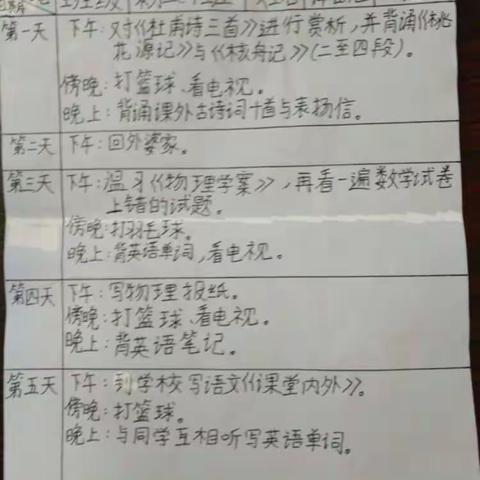 第一天 下午:对《杜甫诗三首》进行赏析,并背诵《桃
花源记》与《核舟记》(二至四段)。
傍晚:打篮球、看电视。
晚上:背诵课外古诗词十首与表扬信。
第二天 下午:回外婆家。
第三天 下午:温习《物理学案》,再看一遍数学试卷
上错的试题。
傍晚:打羽毛球。
晚上:背英语单词,看电视。
第四天 下午:写物理报纸。
傍晚:打篮球、看电视。
晚上:背英语笔记。
第五天 下午:到学校写语文《课堂内外》。
傍晚:打篮球。
晚上:与同学互相听写英语单词。